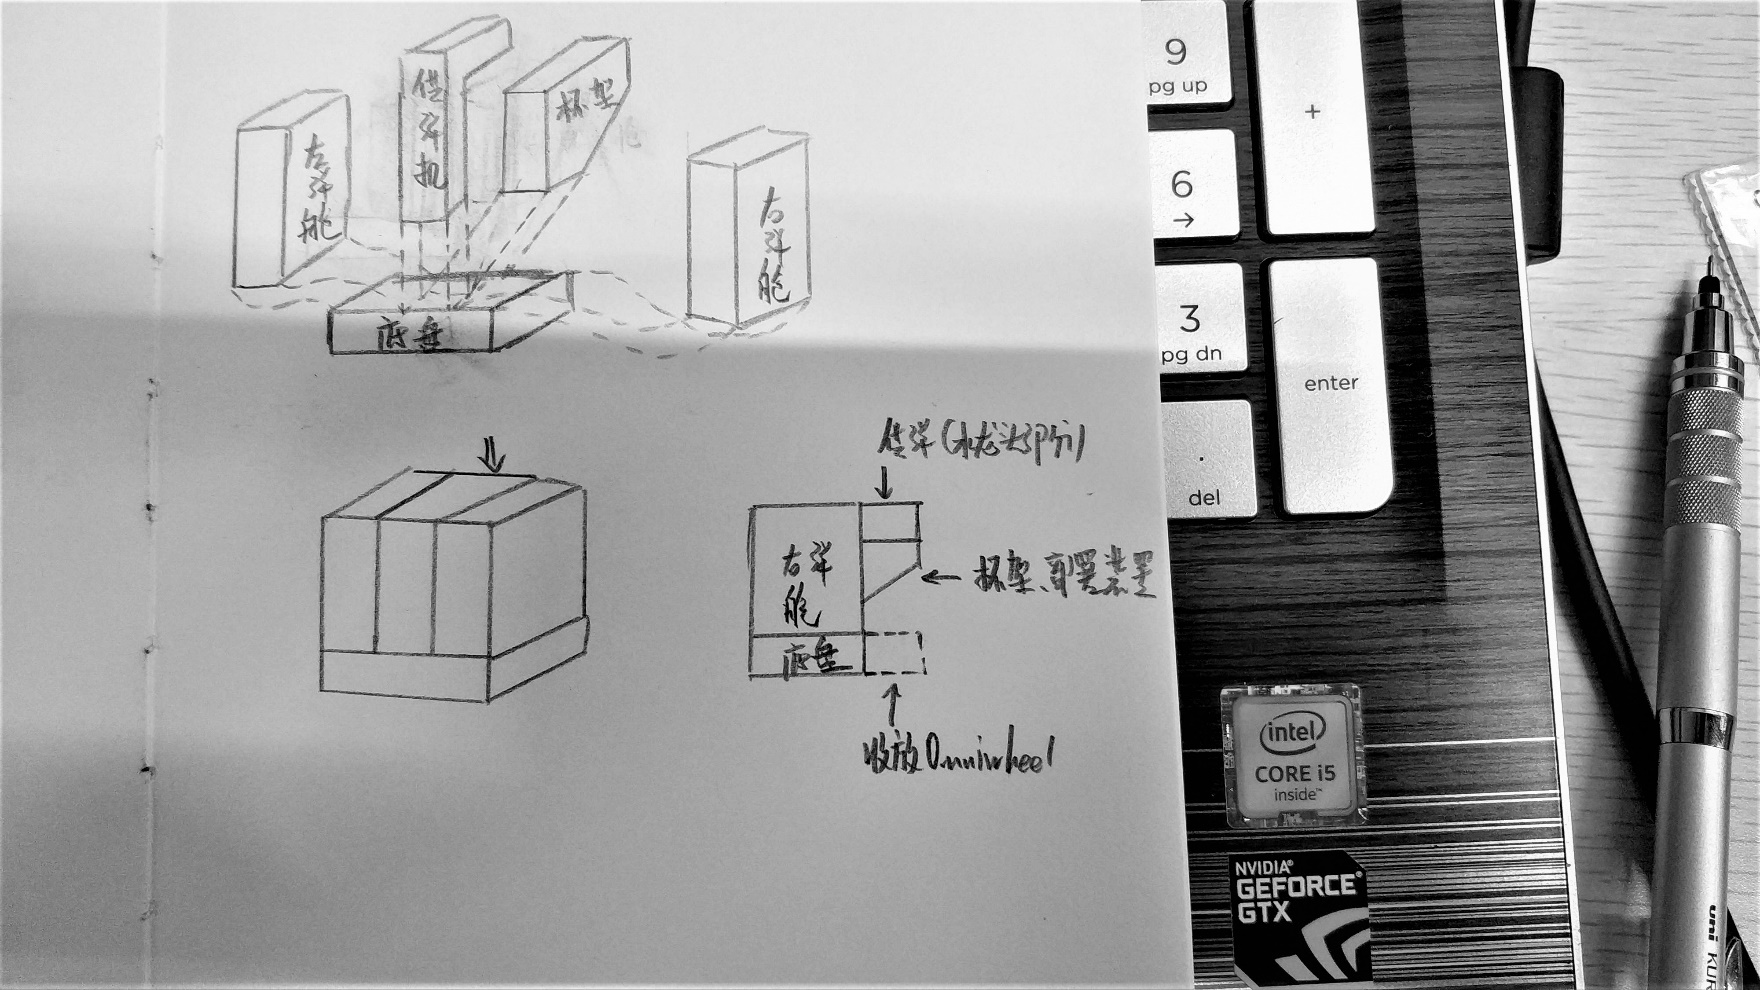 供弹机
杯架
左弹舱
右弹舱
底盘
供弹(水龙头部分)
右弹舱
杯架、配置装置
底盘
收放Omniwheel
9
pg up
+
6
→
3
pg dn
enter
.
del
intel
CORE i5
inside™
NVIDIA®
GEFORCE®
GTX
uni